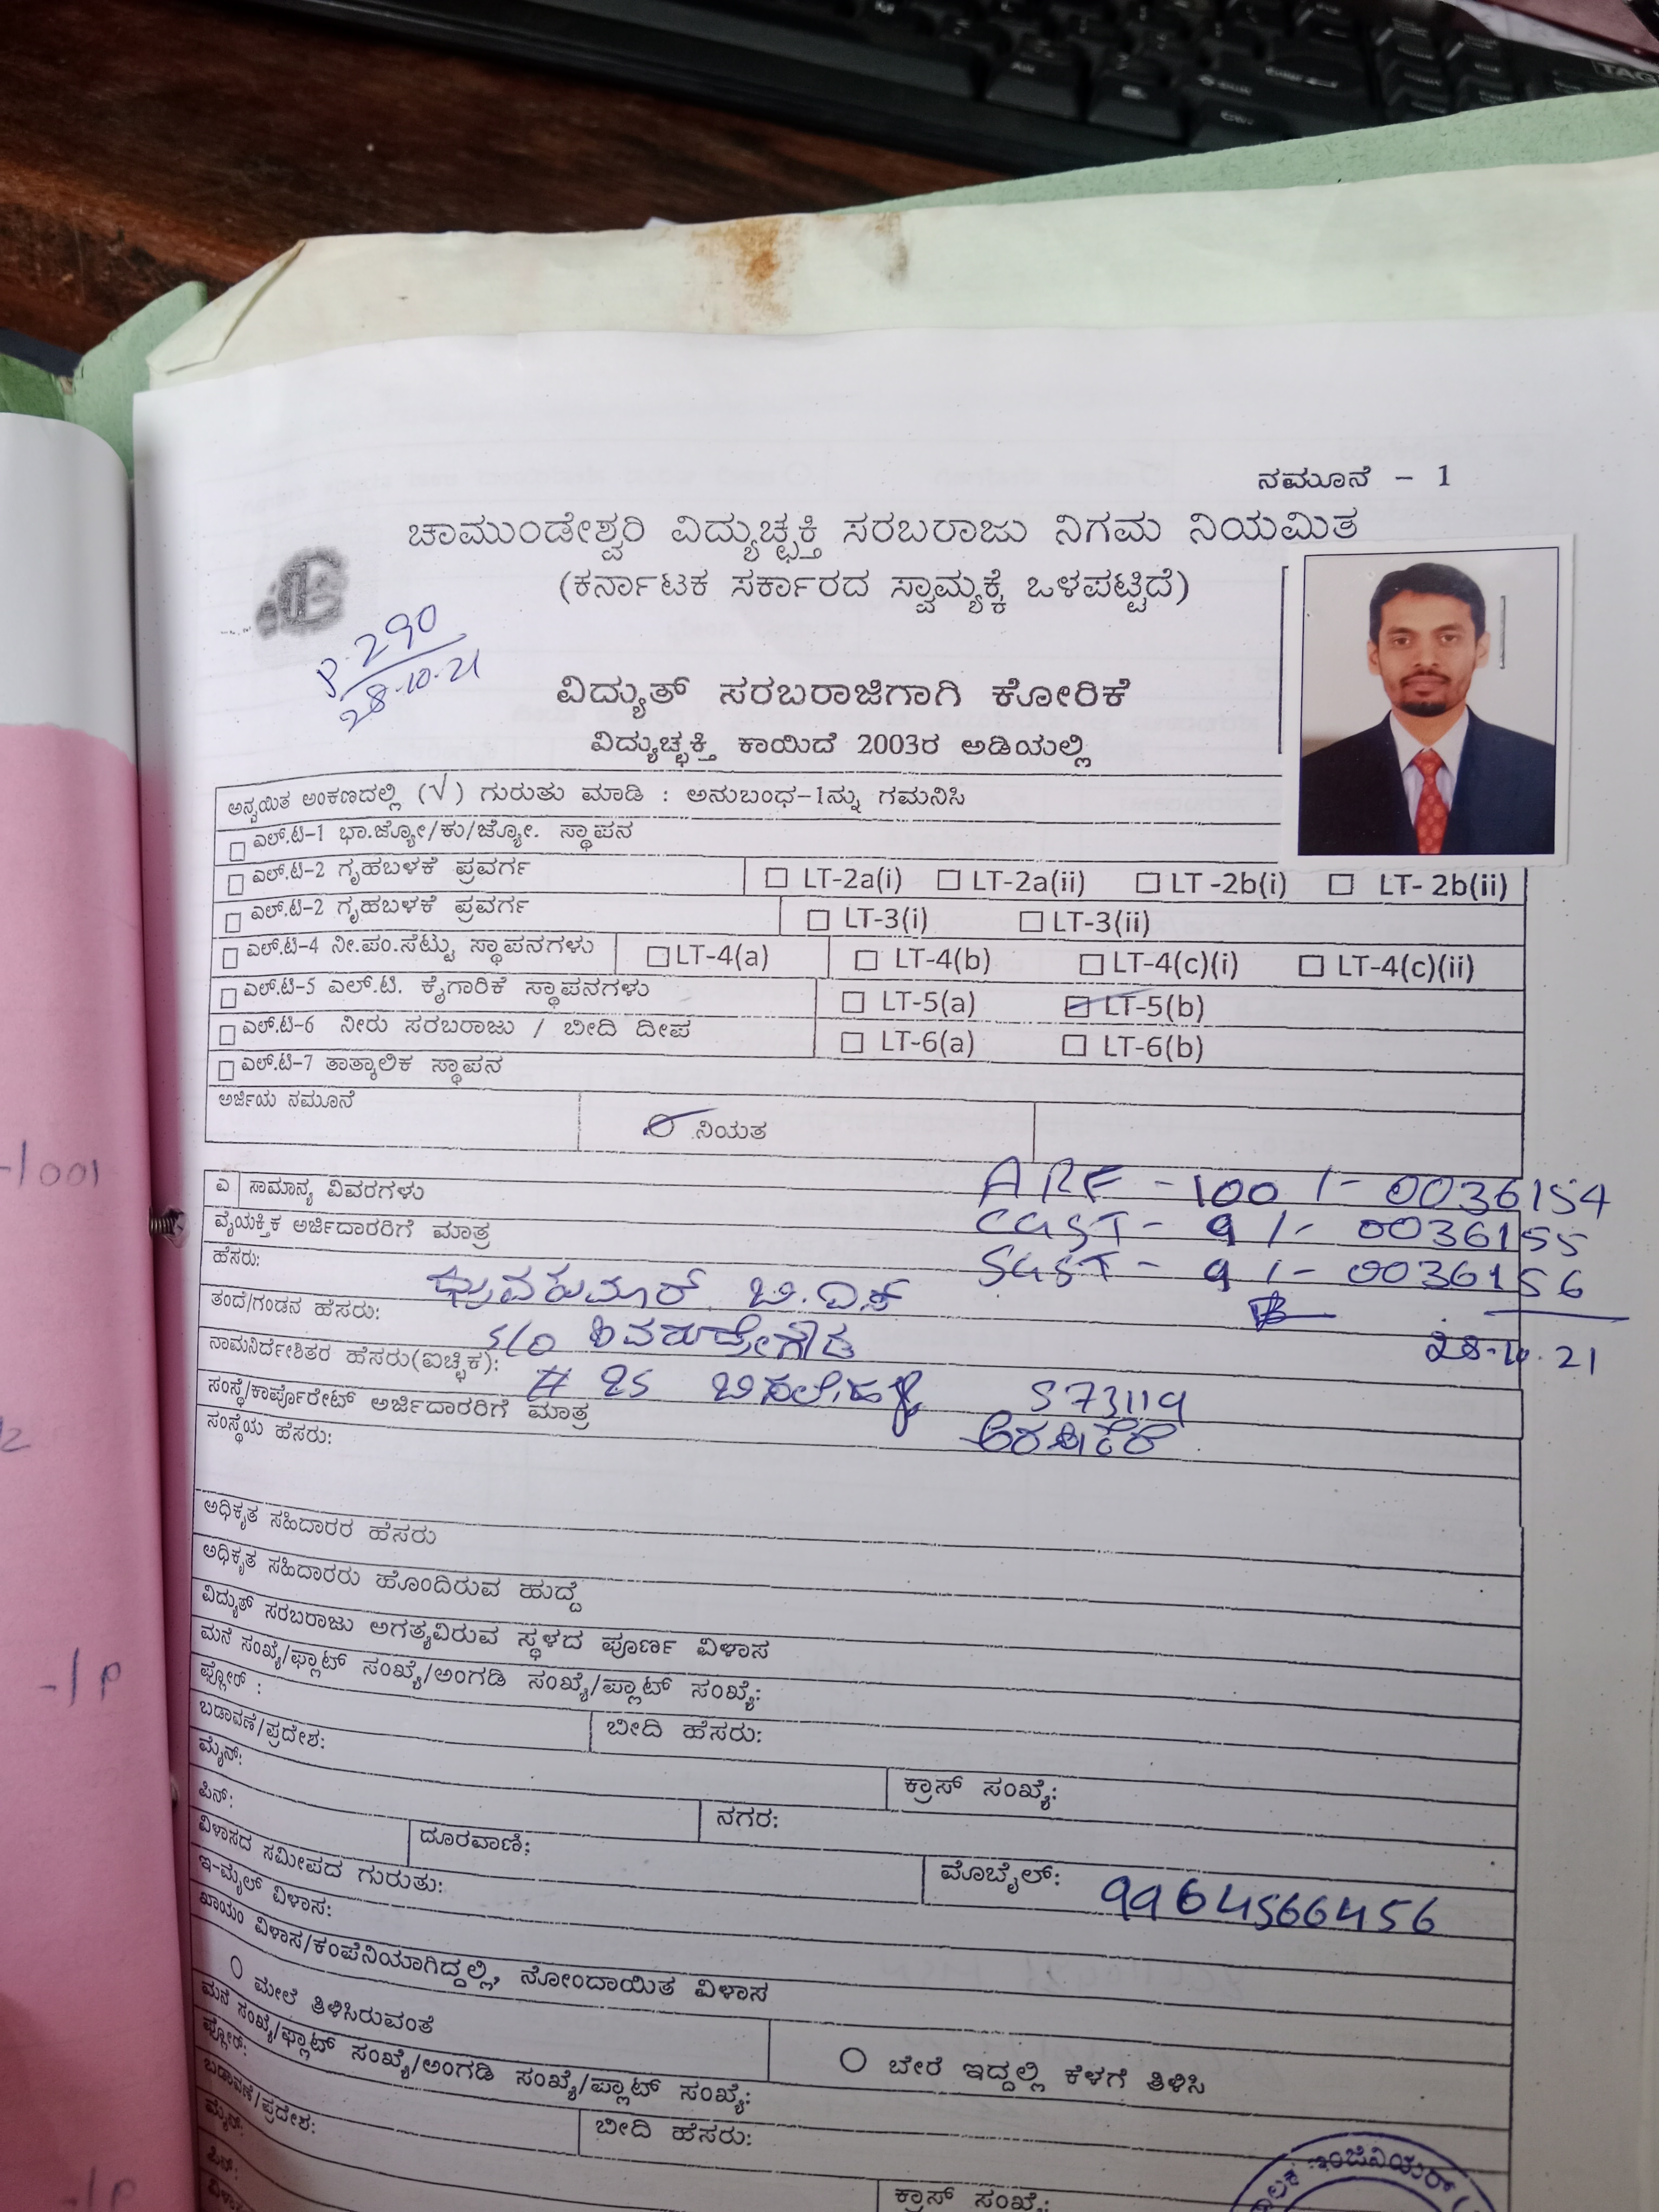 ನಮೂನೆ – 1
ಚಾಮುಂಡೇಶ್ವರಿ ವಿದ್ಯುಚ್ಛಕ್ತಿ ಸರಬರಾಜು ನಿಗಮ ನಿಯಮಿತ
(ಕರ್ನಾಟಕ ಸರ್ಕಾರದ ಸ್ವಾಮ್ಯಕ್ಕೆ ಒಳಪಟ್ಟಿದೆ)
P-290
28-10-21
ವಿದ್ಯುತ್ ಸರಬರಾಜಿಗಾಗಿ ಕೋರಿಕೆ
ವಿದ್ಯುಚ್ಛಕ್ತಿ ಕಾಯಿದೆ 2003ರ ಅಡಿಯಲ್ಲಿ
ಅನ್ವಯಿತ ಅಂಕಣದಲ್ಲಿ (√) ಗುರುತು ಮಾಡಿ : ಅನುಬಂಧ-1ನ್ನು ಗಮನಿಸಿ
ಎಲ್.ಟಿ-1 ಭಾ.ಜ್ಯೋ/ಕು/ಜ್ಯೋ. ಸ್ಥಾಪನ
ಎಲ್.ಟಿ-2 ಗೃಹಬಳಕೆ ಪ್ರವರ್ಗ LT-2a(i) LT-2a(ii) LT -2b(i) LT- 2b(ii)
ಎಲ್.ಟಿ-2 ಗೃಹಬಳಕೆ ಪ್ರವರ್ಗ LT-3(i) LT-3(ii)
ಎಲ್.ಟಿ-4 ನೀ.ಪಂ.ಸೆಟ್ಟು ಸ್ಥಾಪನಗಳು LT-4(a) LT-4(b) LT-4(c)(i) LT-4(c)(ii)
ಎಲ್.ಟಿ-5 ಎಲ್.ಟಿ. ಕೈಗಾರಿಕೆ ಸ್ಥಾಪನಗಳು LT-5(a) LT-5(b)
ಎಲ್.ಟಿ-6 ನೀರು ಸರಬರಾಜು / ಬೀದಿ ದೀಪ LT-6(a) LT-6(b)
ಎಲ್.ಟಿ-7 ತಾತ್ಕಾಲಿಕ ಸ್ಥಾಪನ
ಅರ್ಜಿಯ ನಮೂನೆ ನಿಯತ
ಎ ಸಾಮಾನ್ಯ ವಿವರಗಳು
ARF - 100 /- 0036154
ವೈಯಕ್ತಿಕ ಅರ್ಜಿದಾರರಿಗೆ ಮಾತ್ರ
CGST - 9 /- 0036155
ಹೆಸರು: ಧ್ರುವಕುಮಾರ್ ಬಿ.ಎಸ್
SGST - 9 /- 0036156
ತಂದೆ/ಗಂಡನ ಹೆಸರು: S/O ಶಿವರುದ್ರೇಗೌಡ
28-10.21
ನಾಮನಿರ್ದೇಶಿತರ ಹೆಸರು(ಐಚ್ಛಿಕ): # 25 573119
ಸಂಸ್ಥೆ/ಕಾರ್ಪೊರೇಟ್ ಅರ್ಜಿದಾರರಿಗೆ ಮಾತ್ರ ಅರಸೀಕೆರೆ
ಸಂಸ್ಥೆಯ ಹೆಸರು:
ಅಧಿಕೃತ ಸಹಿದಾರರ ಹೆಸರು
ಅಧಿಕೃತ ಸಹಿದಾರರು ಹೊಂದಿರುವ ಹುದ್ದೆ
ವಿದ್ಯುತ್ ಸರಬರಾಜು ಅಗತ್ಯವಿರುವ ಸ್ಥಳದ ಪೂರ್ಣ ವಿಳಾಸ
ಮನೆ ಸಂಖ್ಯೆ/ಫ್ಲಾಟ್ ಸಂಖ್ಯೆ/ಅಂಗಡಿ ಸಂಖ್ಯೆ/ಪ್ಲಾಟ್ ಸಂಖ್ಯೆ:
ಫ್ಲೋರ್ : ಬೀದಿ ಹೆಸರು:
ಬಡಾವಣೆ/ಪ್ರದೇಶ:
ಮೈನ್: ಕ್ರಾಸ್ ಸಂಖ್ಯೆ:
ಪಿನ್: ನಗರ:
ದೂರವಾಣಿ: ಮೊಬೈಲ್: 9964566456
ವಿಳಾಸದ ಸಮೀಪದ ಗುರುತು:
ಇ-ಮೈಲ್ ವಿಳಾಸ:
ಖಾಯಂ ವಿಳಾಸ/ಕಂಪೆನಿಯಾಗಿದ್ದಲ್ಲಿ, ನೋಂದಾಯಿತ ವಿಳಾಸ
ಮೇಲೆ ತಿಳಿಸಿರುವಂತೆ ಬೇರೆ ಇದ್ದಲ್ಲಿ ಕೆಳಗೆ ತಿಳಿಸಿ
ಮನೆ ಸಂಖ್ಯೆ/ಫ್ಲಾಟ್ ಸಂಖ್ಯೆ/ಅಂಗಡಿ ಸಂಖ್ಯೆ/ಪ್ಲಾಟ್ ಸಂಖ್ಯೆ:
ಫ್ಲೋರ್: ಬೀದಿ ಹೆಸರು:
ಬಡಾವಣೆ/ಪ್ರದೇಶ:
ಮೈನ್: ಕ್ರಾಸ್ ಸಂಖ್ಯೆ:
ಪಿನ್:
ಇಂಜಿನಿಯರ್